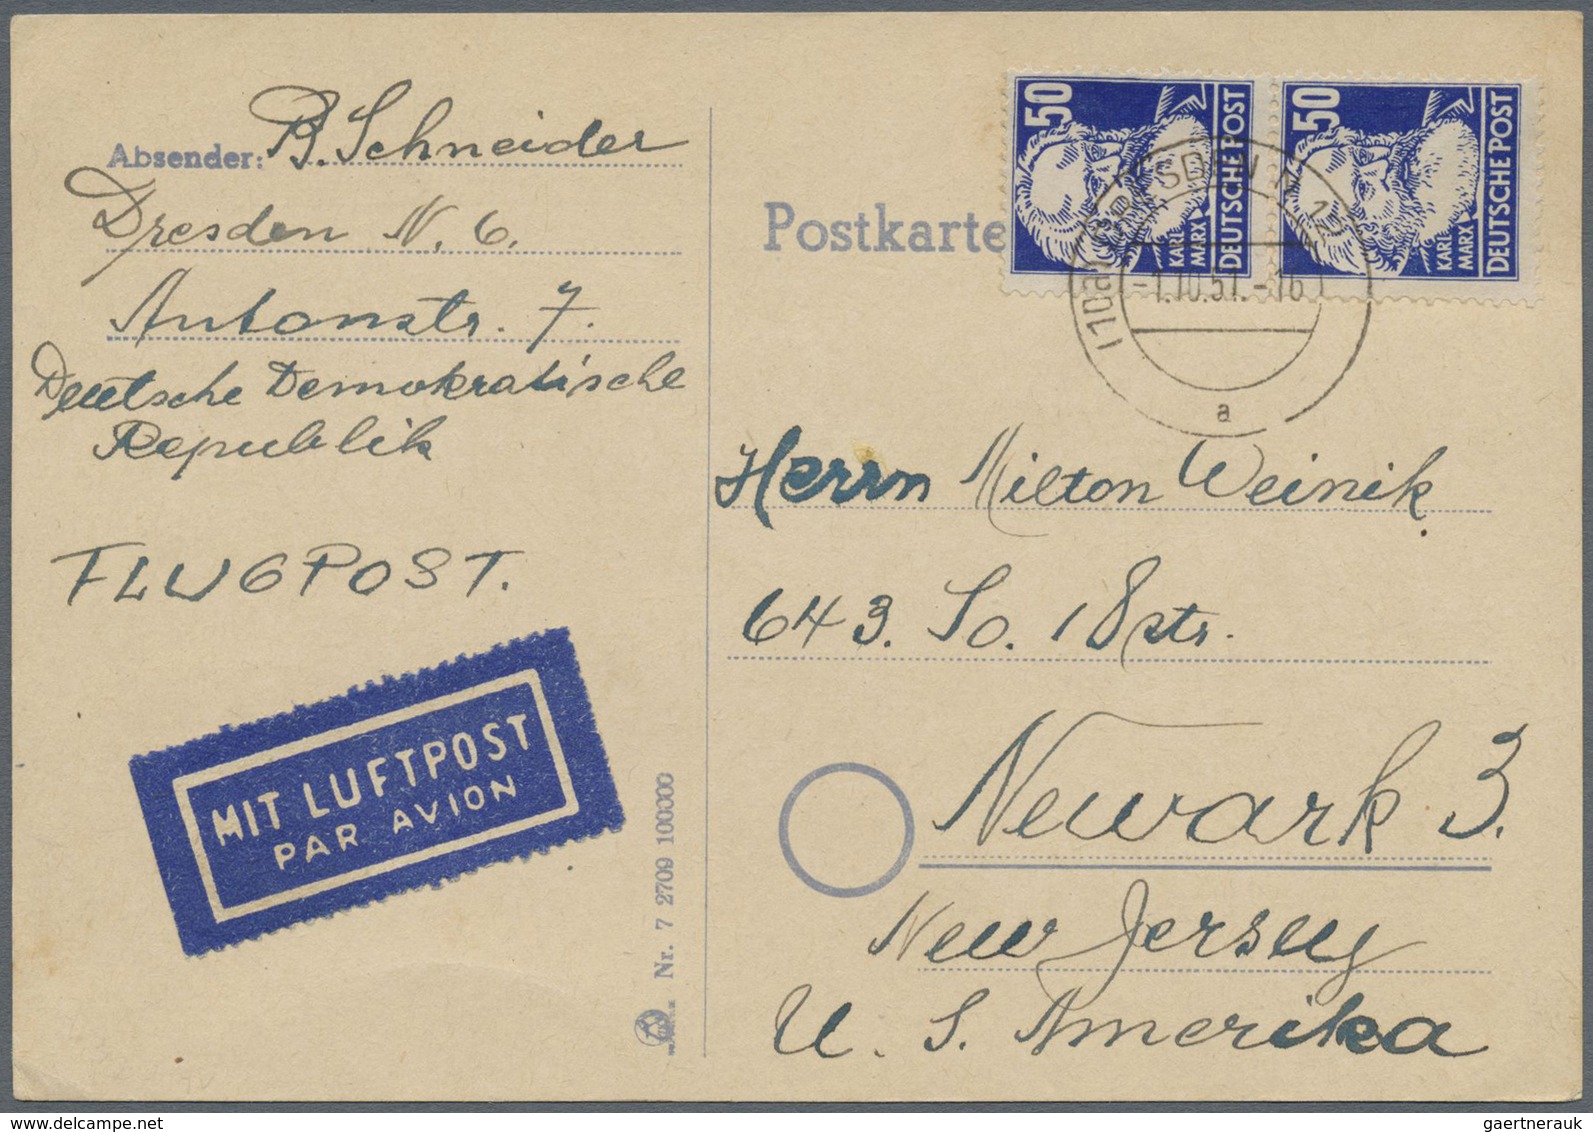 Absender: B. Schneider
Dresden N. 6.
Antonstr. 7.
Deutsche Demokratische
Republik
FLUGPOST.
MIT LUFTPOST
PAR AVION
Nr. 7 2709 100000
Postkarte
50
KARL
MARX
DEUTSCHE POST
50
KARL
MARX
DEUTSCHE POST
(10a) DRESDEN N 12
-1.10.51.-16
a
Herrn Milton Weinik
643. So. 18 str.
Newark 3.
New Jersey
U. S. Amerika
gaertnerauk